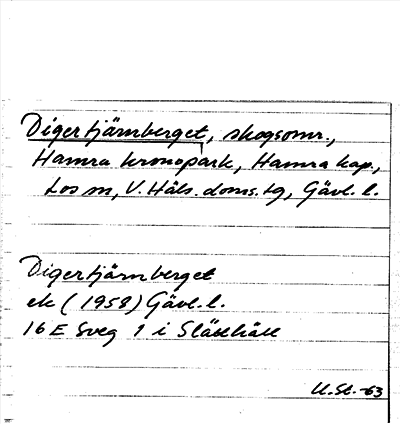 Digertjärnberget, skogsomr.,
Hamra kronopark, Hamra kap.,
Los sn, V. Häls. doms.tg, Gävl. l.
Digertjärnberget
ek (1958) Gävl. l.
16 E Sveg 1 i
U.St.-63